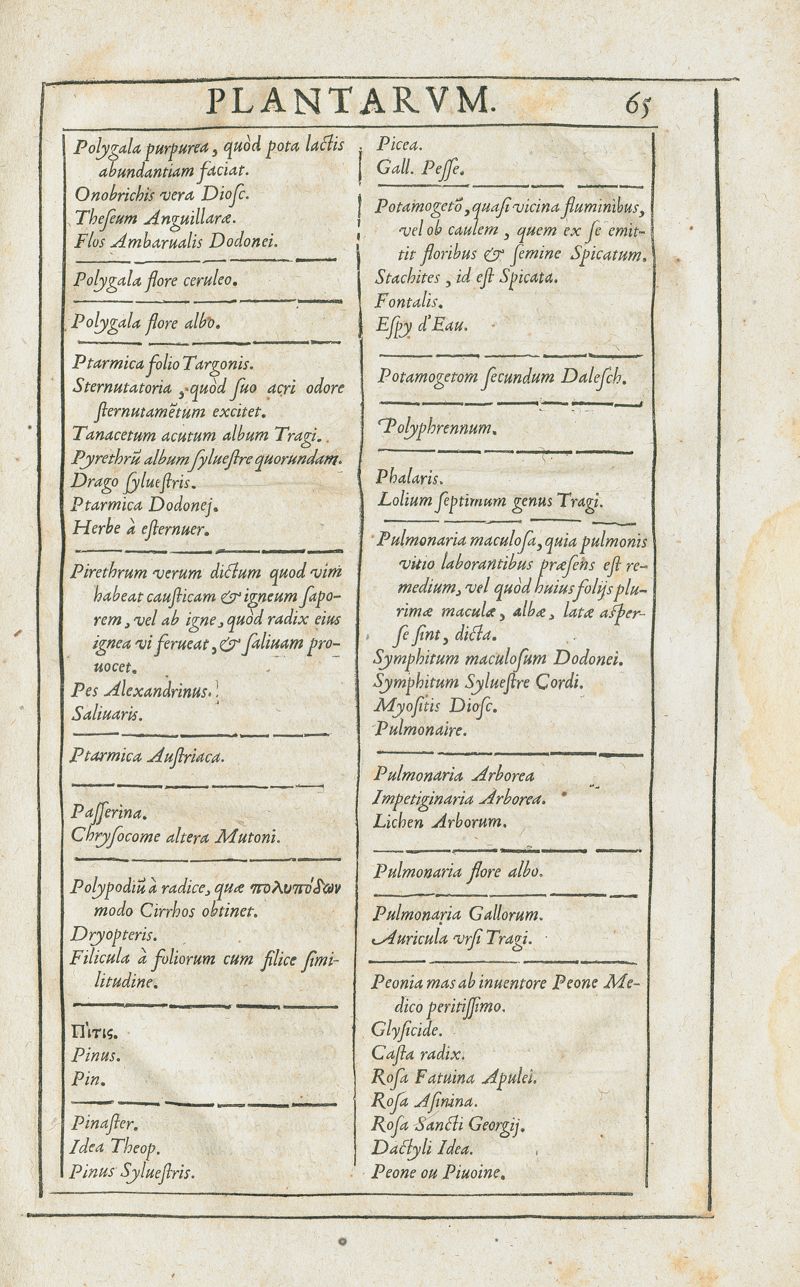 PLANTARVM. 65
Polygala purpurea, quòd pota lactis
abundantiam faciat.
Onobrichis vera Diosc.
Theseum Anguillaræ.
Flos Ambarualis Dodonei.
Polygala flore ceruleo.
Polygala flore albo.
Ptarmica folio Targonis.
Sternutatoria, quòd suo acri odore
sternutamẽtum excitet.
Tanacetum acutum album Tragi.
Pyrethrũ album sylueſtre quorundam.
Drago sylueſtris.
Ptarmica Dodonej.
Herbe à eſternuer.
Pirethrum verum dictum quod vim
habeat cauſticam & igneum ſapo-
rem, vel ab igne, quòd radix eius
ignea vi ferueat, & ſaliuam pro-
uocet.
Pes Alexandrinus.
Saliuaris.
Ptarmica Auſtriaca.
Paſſerina.
Chryſocome altera Mutoni.
Polypodiũ à radice, quæ πολυπόδων
modo Cirrhos obtinet.
Dryopteris.
Filicula à foliorum cum filice ſimi-
litudine.
Πίτις.
Pinus.
Pin.
Pinaſter.
Idea Theop.
Pinus Sylueſtris.
Picea.
Gall. Peſſe.
Potamogetõ, quaſi vicina fluminibus,
vel ob caulem, quem ex ſe emit-
tit floribus & ſemine Spicatum.
Stachites, id eſt Spicata.
Fontalis.
Eſpy d'Eau.
Potamogetom ſecundum Daleſch.
Polyphrennum.
Phalaris.
Lolium ſeptimum genus Tragi.
Pulmonaria maculoſa, quia pulmonis
vitio laborantibus præſens eſt re-
medium, vel quòd huius folijs plu-
rimæ maculæ, albæ, latæ aſper-
ſe ſint, dicta.
Symphitum maculoſum Dodonei.
Symphitum Sylueſtre Cordi.
Myoſitis Dioſc.
Pulmonaire.
Pulmonaria Arborea
Impetiginaria Arborea.
Lichen Arborum.
Pulmonaria flore albo.
Pulmonaria Gallorum.
Auricula vrſi Tragi.
Peonia mas ab inuentore Peone Me-
dico peritiſſimo.
Glyſicide.
Caſta radix.
Roſa Fatuina Apulei.
Roſa Aſinina.
Roſa Sancti Georgij.
Dactyli Idea.
Peone ou Piuoine.